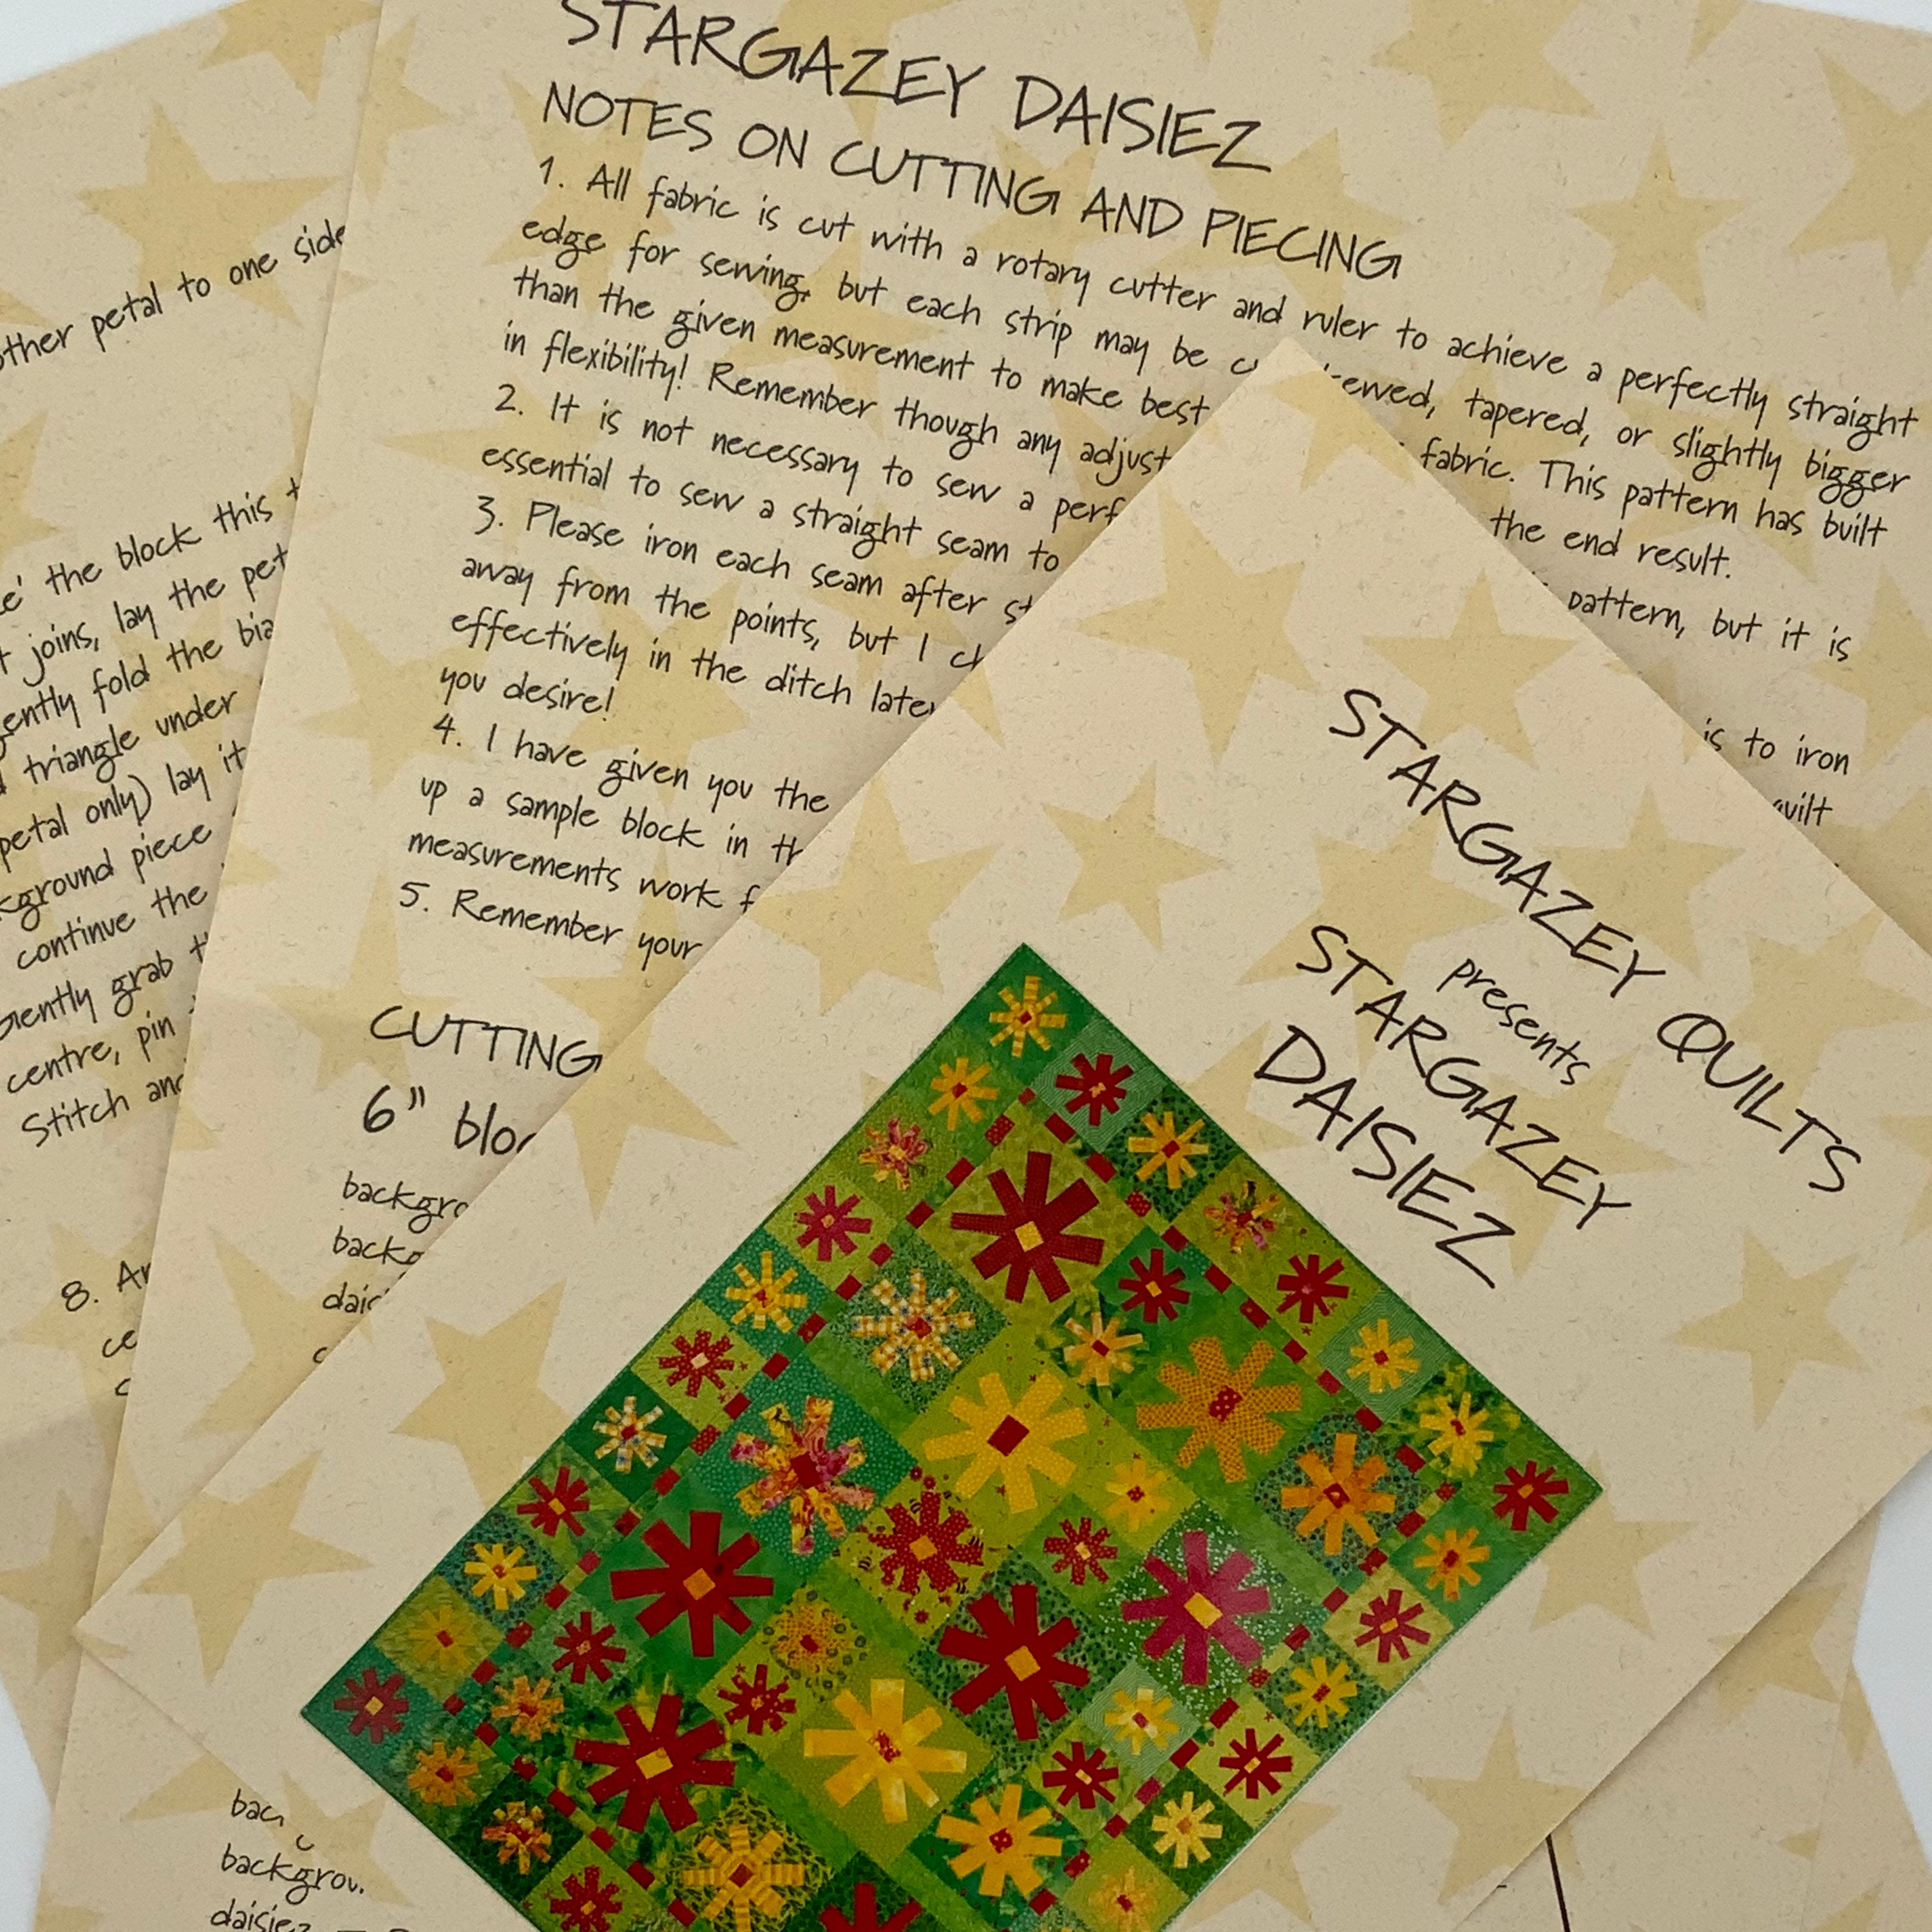 STARGAZEY DAISIEZ
NOTES ON CUTTING AND PIECING
1. All fabric is cut with a rotary cutter and ruler to achieve a perfectly straight
edge for sewing, but each strip may be tapered, or slightly bigger
than the given measurement to make best fabric. This pattern has built
in flexibility! Remember though any the end result.
2. It is not necessary to sew a pattern, but it is
essential to sew a straight seam to
3. Please iron each seam after is to iron
away from the points, but I
effectively in the ditch
you desire!
4. I have given you the
up a sample block in
measurements work
5. Remember your
CUTTING
6"
STARGAZEY QUILTS
presents
STARGAZEY
DAISIEZ
other petal to one side
the block this
joins, lay the
fold the
triangle under
petal only) lay it
piece
continue the
grab
centre, pin
Stitch
8.
daisiez